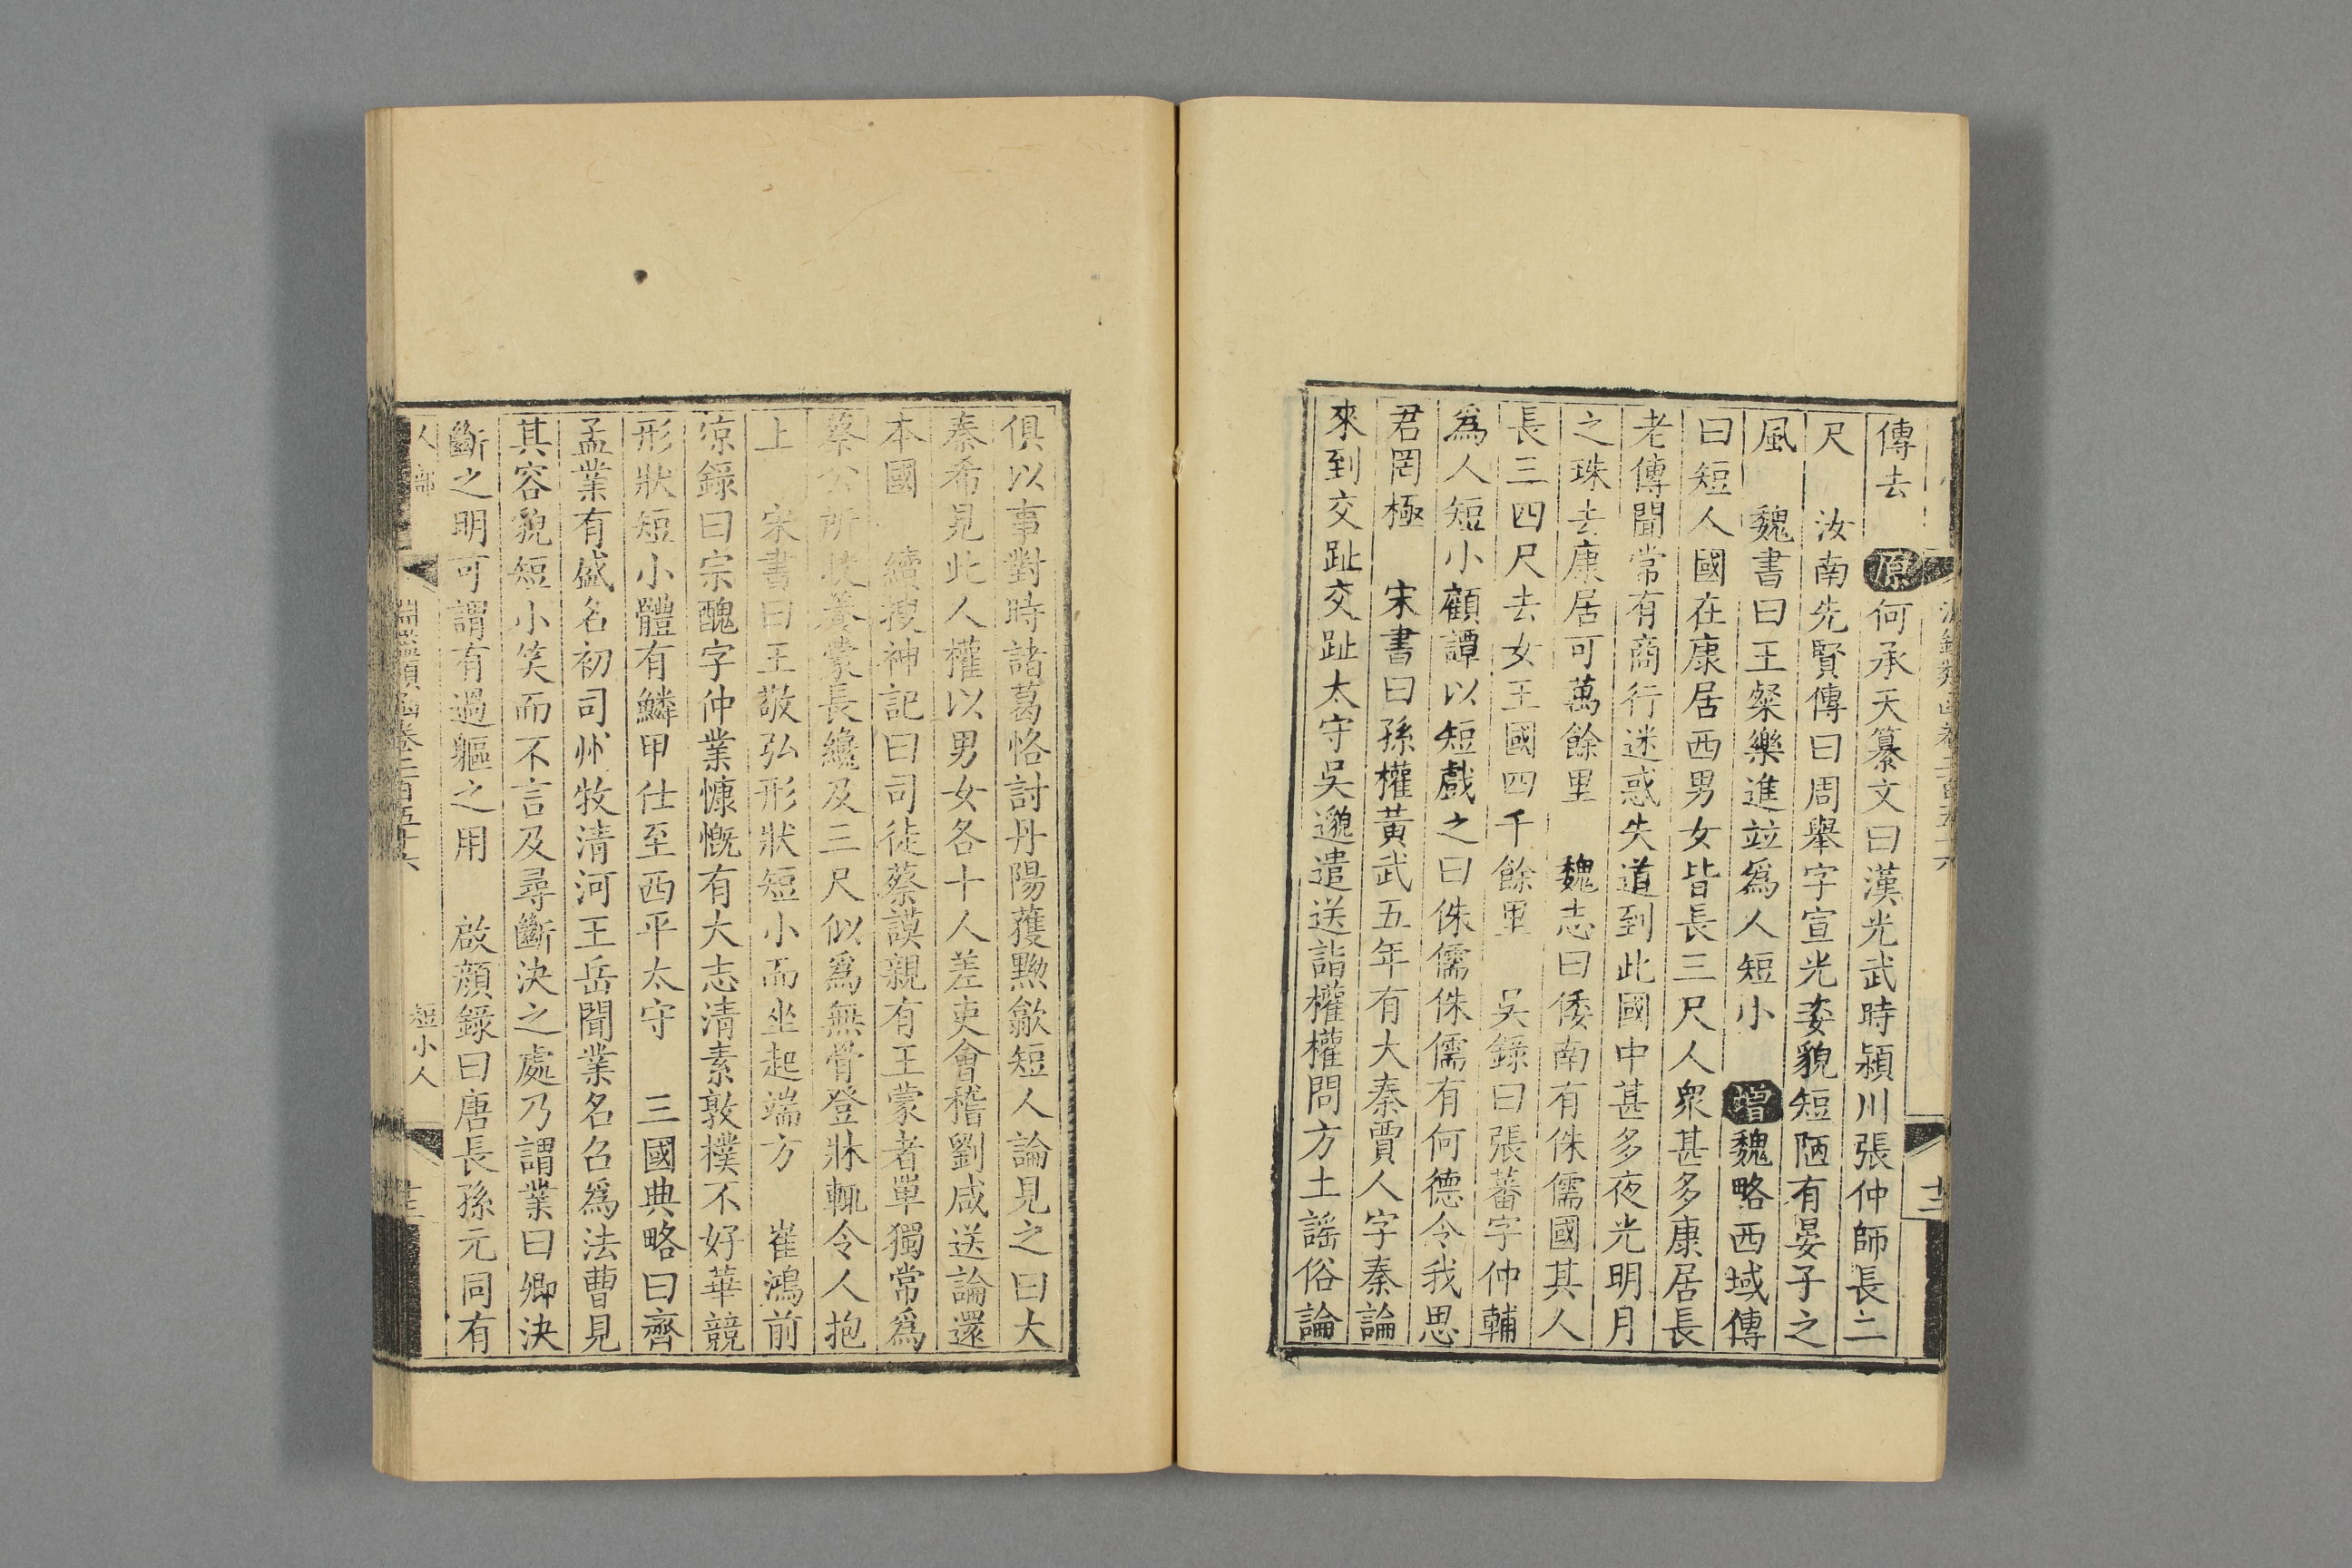 傳去　原何承天纂文曰漢光武時潁川張仲師長二
尺　汝南先賢傳曰周舉字宣光姿貌短陋有晏子之
風　魏書曰王粲樂進竝爲人短小　增魏略西域傳
曰短人國在康居西男女皆長三尺人衆甚多康居長
老傳聞常有商行迷惑失道到此國中甚多夜光明月
之珠去康居可萬餘里　魏志曰倭南有侏儒國其人
長三四尺去女王國四千餘里　吳錄曰張蕃字仲輔
爲人短小顧譚以短戲之曰侏儒侏儒有何德令我思
君罔極　宋書曰孫權黃武五年有大秦賈人字秦論
來到交趾交趾太守吳邈遣送詣權權問方土謠俗論
十三
俱以事對時諸葛恪討丹陽獲黝歙短人論見之曰大
秦希見此人權以男女各十人差吏會稽劉咸送論還
本國　續搜神記曰司徒蔡謨親有王蒙者單獨常爲
蔡公所收養蒙長纔及三尺似爲無骨登牀輒令人抱
上　宋書曰王敬弘形狀短小而坐起端方　崔鴻前
涼錄曰宗醜字仲業慷慨有大志清素敦樸不好華競
形狀短小體有鱗甲仕至西平太守　三國典略曰齊
孟業有盛名初司州牧清河王岳聞業名召爲法曹見
其容貌短小笑而不言及尋斷決之處乃謂業曰卿決
斷之明可謂有過軀之用　啟顏錄曰唐長孫元同有
人部　淵鑑類函卷二百五十六　短小人